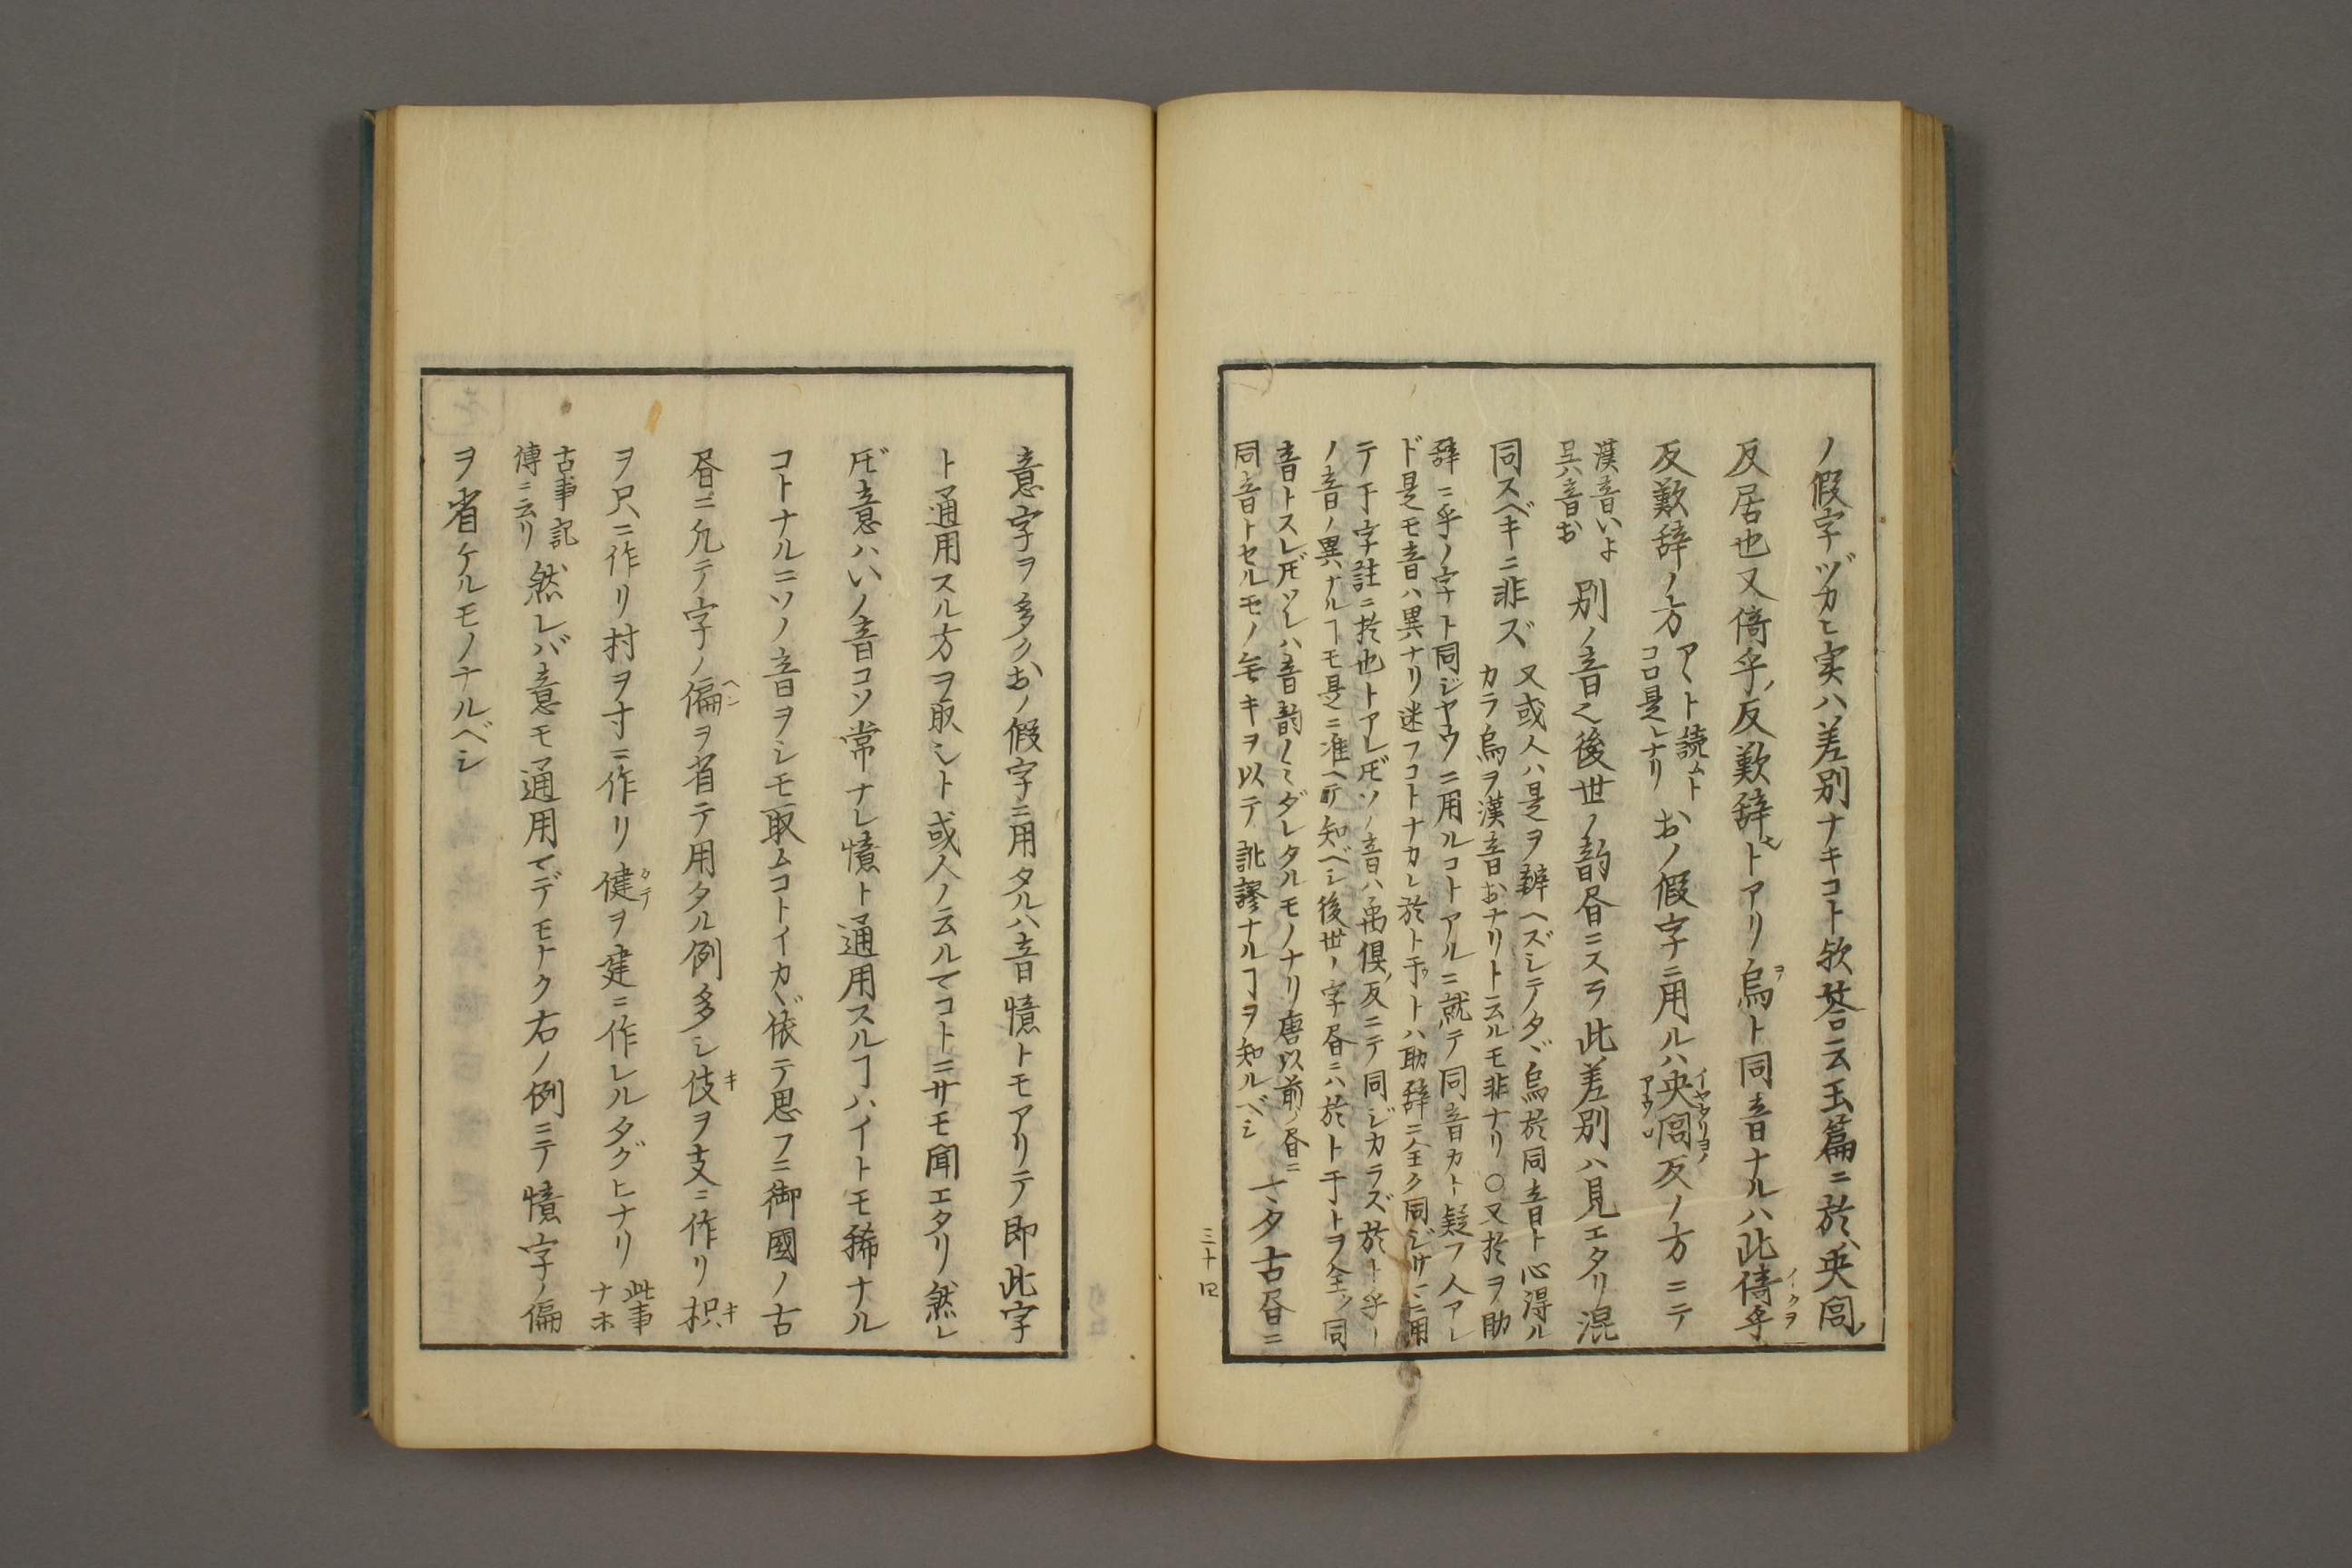 ノ假字ヅカヒ実ハ差別ナキコト欤荅云玉篇ニ於ハ央閭ノ
反居也又倚乎ノ反歎辞也トアリ烏ト同音ナルハ此倚乎ノ
反歎辞ノ方アヽト読ムトコロ是レナリおノ假字ニ用ルハ央閭反ノ方ニテ
漢音いよ呉音お別ノ音也後世ノ韵書ニスラ此差別ハ見エタリ混
同スベキニ非ズ又或人ハ是ヲ辨ヘズシテタヾ烏於同音ト心得ル
カラ烏ヲ漢音おナリト云ルモ非ナリ○又於ヲ助
辞ニ乎ノ字ト同ジヤウニ用ルコトアルニ就テ同音カト疑フ人アレ
ド是モ音ハ異ナリ迷フコトナカレ於ト于トハ助辞ニ全ク同ジサマニ用
テ于字註ニ於也トアレ𪜈ソノ音ハ禹倶ノ反ニテ同ジカラズ於ト乎ト
ノ音ノ異ナルヿモ是ニ准ヘテ知ベシ後世ノ字書ニハ於ト于トヲ全ク同
音トスレ𪜈ソレハ音韵ノミダレタルモノナリ唐以前ノ書ニ
同音トセルモノ無キヲ以テ訛謬ナルヿヲ知ルベシマタ古書ニ
三十四
意字ヲ多クおノ假字ニ用タルハ音憶トモアリテ即此字
ト通用スル方ヲ取シト或人ノ云ルマコトニサモ聞エタリ然レ
𪜈意ハいノ音コソ常ナレ憶ト通用スルヿハイトモ稀ナル
コトナルニソノ音ヲシモ取ムコトイカヾ依テ思フニ御國ノ古
書ニ凡テ字ノ偏ヲ省テ用タル例多シ伎ヲ支ニ作リ枳
ヲ只ニ作リ村ヲ寸ニ作リ健ヲ建ニ作レルタグヒナリ此事ナホ
古事記傳ニ云リ然レバ意モ通用マデモナク右ノ例ニテ憶字ノ偏
ヲ省ケルモノナルベシ